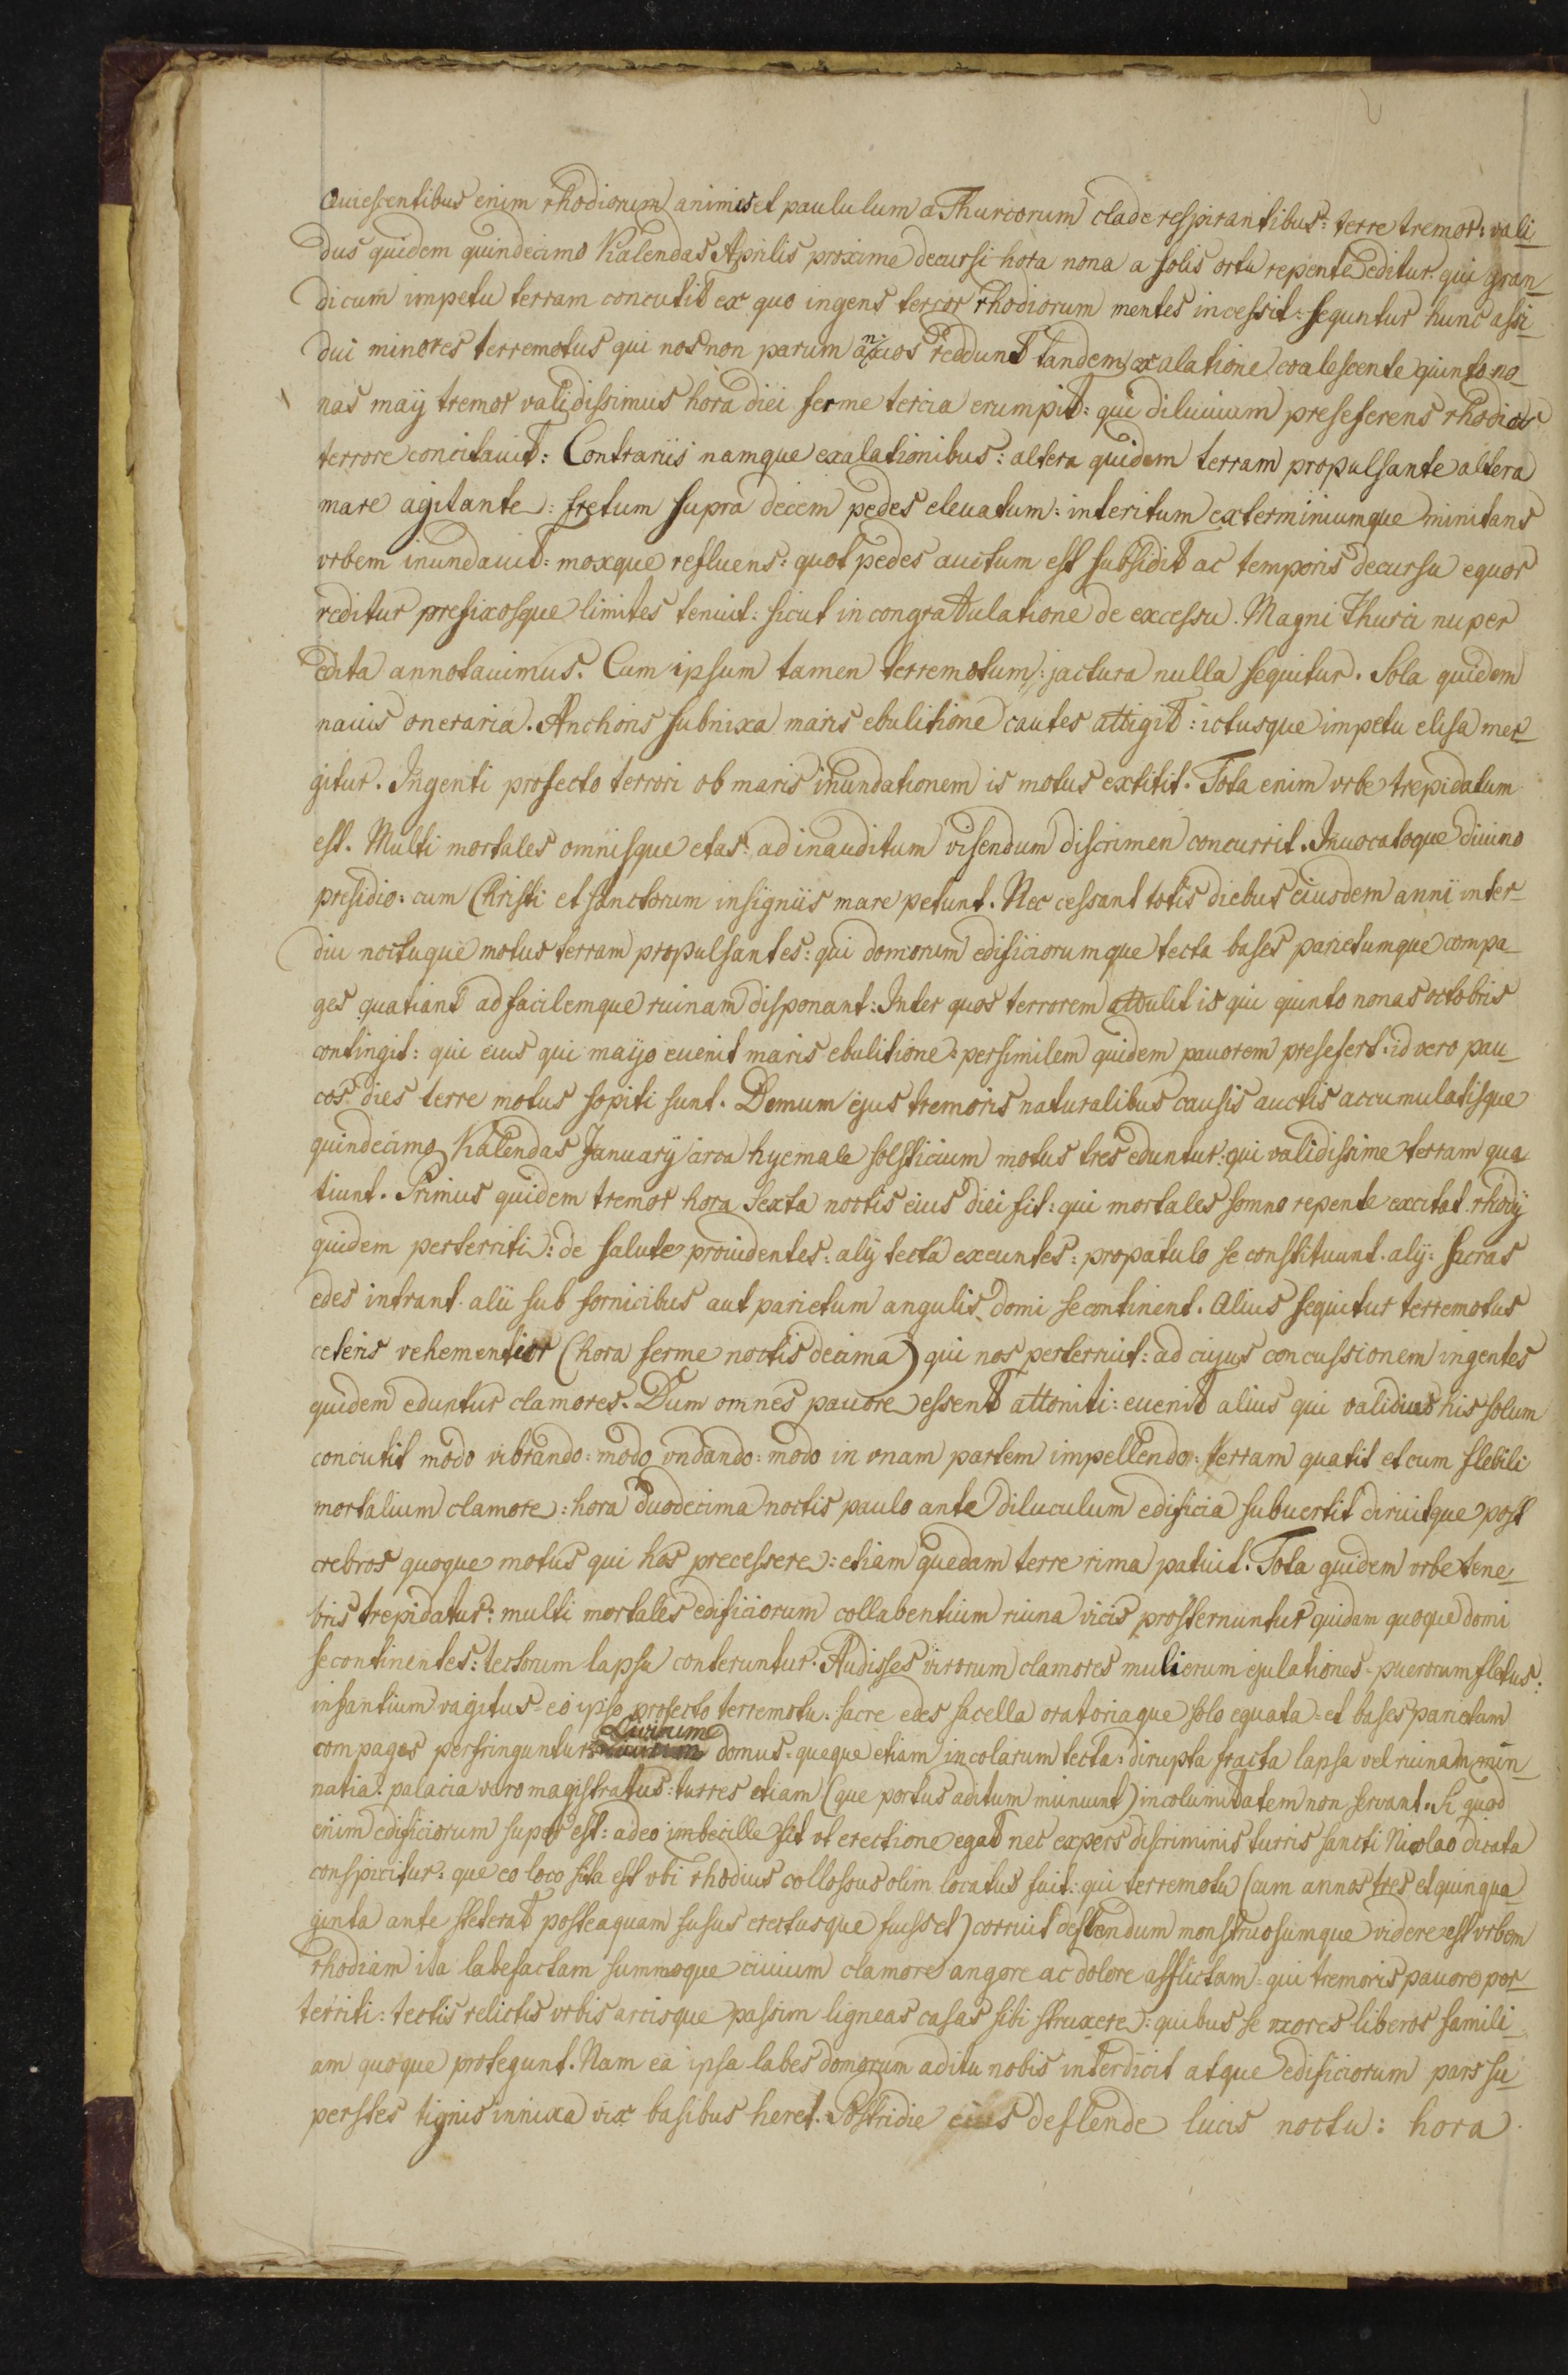 Quiescentibus enim rhodiorum animis et paululum a Thurcorum clade respirantibus: terre tremor: vali_
dus quidem quindecimo Kalendas Aprilis proxime decursi hora nona a solis ortu repente editur. qui gran_
di cum impetu terram concutit ex quo ingens terror rhodiorum mentes incessit: seguntur hunc assi_
dui minores terremotus qui nos non parum anxios reddunt Tandem exalatione coalescente quinto no_
nas maÿ tremor validissimus hora diei ferme tercia erumpit: qui diluuium preseferens rhodios
terrore concitauit: Contrariis namque exalationibus: altera quidem terram propulsante altera
mare agitante: fretum supra decem pedes eleuatum: interitum exterminiumque minitans
vrbem inundauit: moxque refluens: quot pedes auctum est subsidit ac temporis decursu equor
reditur prefixosque limites tenuit: sicut in congratulatione de excessu. Magni Thurci nuper
edita annotauimus. Cum ipsum tamen terremotum: jactura nulla sequitur. Sola quidem
nauis oneraria. Anchoris subnixa maris ebulitione cautes attigit: ictusque impetu elisa mer_
gitur. Ingenti profecto terrori ob maris inundationem is motus extitit. Tota enim vrbe trepidatum
est. Multi mortales omnisque etas: ad inauditum visendum discrimen concurrit. Inuocatoque diuino
presidio: cum Christi et sanctorum insigniis mare petunt. Nec cessant totis diebus eiusdem anni inter_
diu noctuque motus terram propulsantes: qui domorum edificiorumque tecta bases parietumque compa_
ges quatiant ad facilemque ruinam disponant: Inter quos terrorem attulit is qui quinto nonas octobris
contingit: qui eius qui mayo euenit maris ebulitione: persimilem quidem pauorem presefert: id vero pau_
cos dies terre motus sopiti sunt. Demum ejus tremoris naturalibus causis auctis accumulatisque
quindecimo Kalendas Januarÿ circa hyemale solsticium motus tres eduntur: qui validissime terram qua
tiunt. Primus quidem tremor hora sexta noctis eius diei fit: qui mortales somno repente excitat. rhodÿ
quidem perterriti: de salute prouidentes: alÿ tecta exeuntes: propatulo se constituunt. alÿ: sacras
edes intrant. alii sub fornicibus aut parietum angulis domi se continent. Alius sequitur terremotus
ceteris vehementior (hora ferme noctis decima) qui nos perterruit: ad cujus concussionem ingentes
quidem eduntur clamores. Dum omnes pauore essent attoniti: euenit alius qui validius his solum
concutit modo vibrando: modo vndando: modo in vnam partem impellendo: terram quatit et cum flebili
mortalium clamore: hora duodecima noctis paulo ante diluculum edificia subuertit diruitque post
crebros quoque motus qui hos precessere: etiam quedam terre rima patuit. Tota quidem vrbe tene_
bris trepidatur: multi mortales edificiorum collabentium ruina vicis prosternuntur quidam quoque domi
se continentes: tectorum lapsu conteruntur. Audisses virorum clamores mulierum ejulationes. puerorum fletus:
infantium vagitus: eo ipso profecto terremotu: sacre edes sacella oratoriaque solo equata: et bases parietum
compages perfringuntur Liuirume domus. queque etiam incolarum tecta: dirupta fracta lapsa vel ruinam min_
natia. palacia vero magistratus: turres etiam (que portus aditum muniunt) incolumitatem non seruant. Si quod
enim edificiorum super est: adeo imbecille fit vt erectione egat nec expers discriminis turris sancti Nicolao dicata
conspicitur: que eo loco sita est vbi rhodius collossus olim locatus fuit: qui terremotu (cum annos tres et quinqua_
ginta ante steterat posteaquam fusus erectusque fuisset) corruit deflendum monstruosumque videre est vrbem
rhodiam ita labefactam summoque ciuium clamore angore ac dolore afflictam: qui tremoris pauore per_
territi: tectis relictis vrbis arcisque passim ligneas casas sibi struxere: quibus se uxores liberos famili_
am quoque protegunt. Nam ea ipsa labes domorum aditu nobis interdicit atque edificiorum pars su_
perstes tignis innixa vix basibus heret. Postridie eius deflende lucis noctu: hora